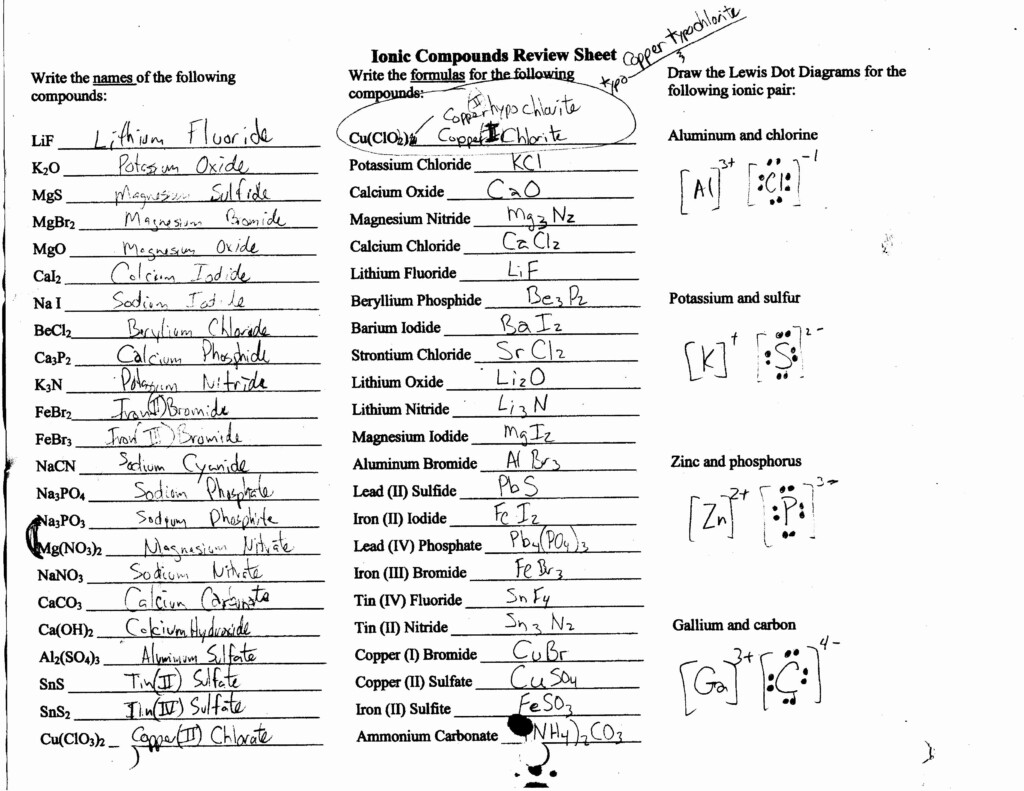 Copper Hypochlorite
3
typo
Ionic Compounds Review Sheet
Write the names of the following
compounds:
LiF Lithium Fluoride
K2O Potassium Oxide
MgS Magnesium Sulfide
MgBr2 Magnesium Bromide
MgO Magnesium Oxide
CaI2 Calcium Iodide
Na I Sodium
BeCl2 Berylium Chloride
Ca3P2 Calcium Phosphide
K3N Potassium Nitride
FeBr2 Iron (II) Bromide
FeBr3 Iron (III) Bromide
NaCN Sodium Cyanide
Na3PO4 Sodium Phosphate
Na3PO3 Sodium Phosphite
Mg(NO3)2 Magnesium Nitrate
NaNO3 Sodium Nitrate
CaCO3 Calcium Carbonate
Ca(OH)2 Calcium Hydroxide
Al2(SO4)3 Aluminum Sulfate
SnS Tin(II) Sulfate
SnS2 Tin(IV) Sulfate
Cu(ClO3)2 Copper(II) Chlorate
Write the formulas for the following
compounds:
Copper hypochlorite
Cu(ClO2)2 Copper II Chlorite
Potassium Chloride KCl
Calcium Oxide CaO
Magnesium Nitride Mg3N2
Calcium Chloride CaCl2
Lithium Fluoride LiF
Beryllium Phosphide Be3P2
Barium Iodide BaI2
Strontium Chloride SrCl2
Lithium Oxide Li2O
Lithium Nitride Li3N
Magnesium Iodide MgI2
Aluminum Bromide AlBr3
Lead (II) Sulfide PbS
Iron (II) Iodide FeI2
Lead (IV) Phosphate Pb4(PO4)3
Iron (III) Bromide FeBr3
Tin (IV) Fluoride SnF4
Tin (II) Nitride Sn3N2
Copper (I) Bromide CuBr
Copper (II) Sulfate CuSO4
Iron (II) Sulfite FeSO3
Ammonium Carbonate (NH4)2CO3
Draw the Lewis Dot Diagrams for the
following ionic pair:
Aluminum and chlorine
[Al]3+ [Cl]-1
Potassium and sulfur
[K]+ [S]2-
Zinc and phosphorus
[Zn]2+ [P]3-
Gallium and carbon
[Ga]3+ [C]4-